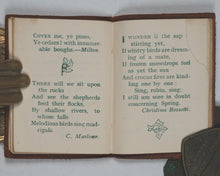 COVER me, ye pines,
Ye cedars! with innumer-
able boughs.—Milton.
THERE will we sit upon
the rocks
And see the shepherds
feed their flocks,
By shallow rivers, to
whose falls
Melodious birds sing mad-
rigals.
C. Marlowe.
I WONDER if the sap is
stirring yet,
If wintry birds are dreaming
of a mate,
If frozen snowdrops feel
as yet the sun
And crocus fires are kindling
one by one:
Sing, robin, sing;
I still am sore in doubt
concerning Spring.
Christina Rossetti.